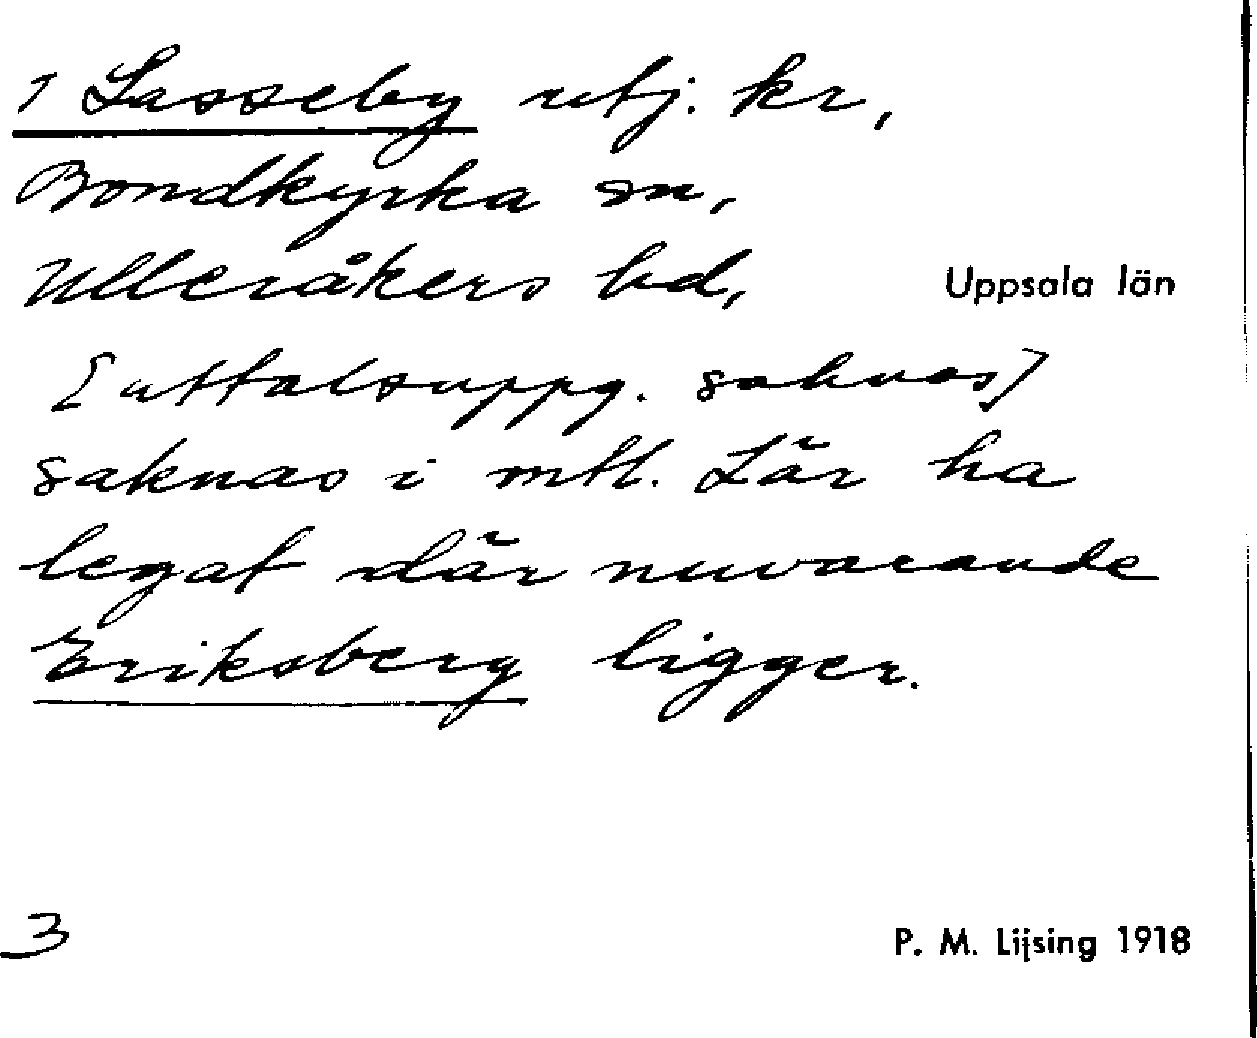 1 Lasseby utj. kr,
Bondkyrka sn,
Ulleråkers hd, Uppsala län
[uttalsuppg. saknas]
saknas i mtl. Lär ha
legat där nuvarande
Eriksberg ligger.
3 P. M. Lijsing 1918